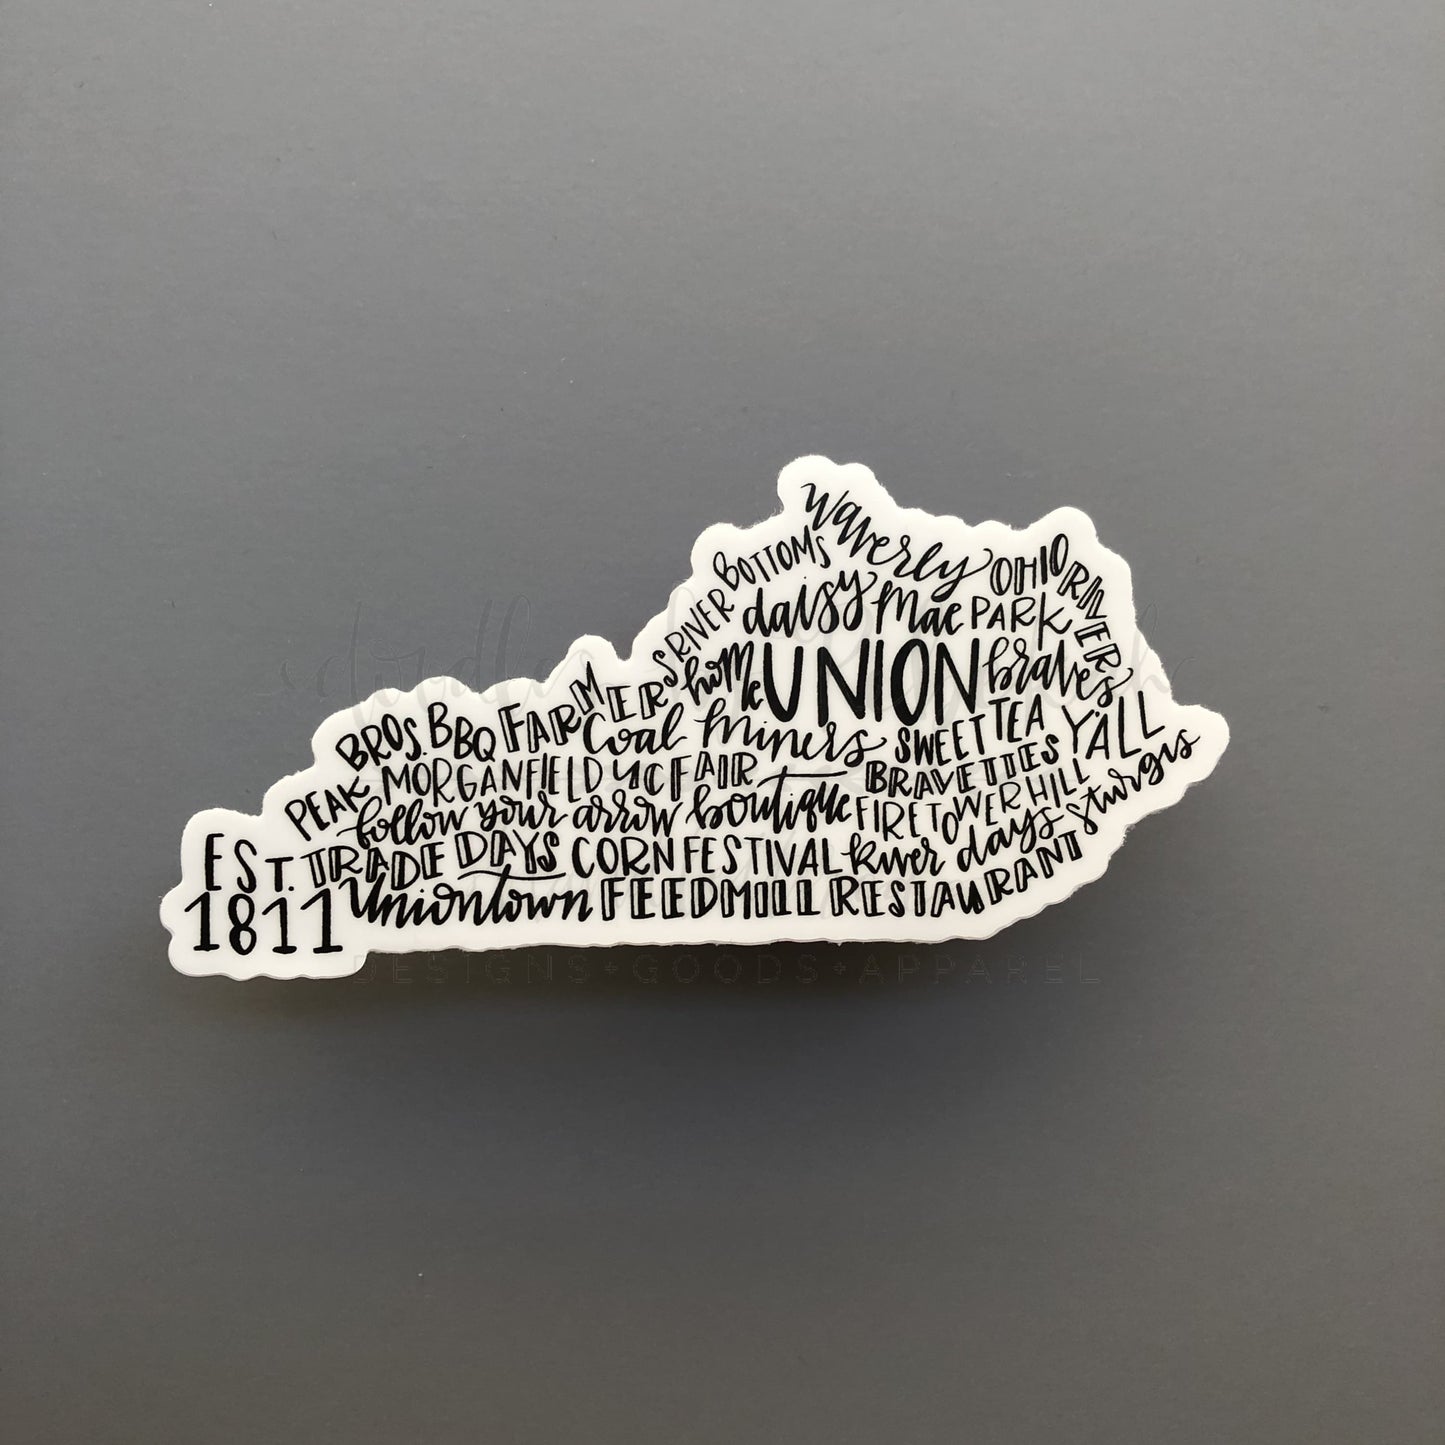 waverly
RIVER BOTTOMS
OHIO RIVER
daisy Mae PARK
home UNION braves
FARMERS
coal miners SWEET TEA Y'ALL
PEAK BROS. BBQ
MORGANFIELD UC FAIR BRAVETTES
follow your arrow boutique FIRETOWER HILL sturgis
EST. TRADE DAYS CORN FESTIVAL River days
1811 Uniontown FEEDMILL RESTAURANT
DESIGNS+GOODS+APPAREL